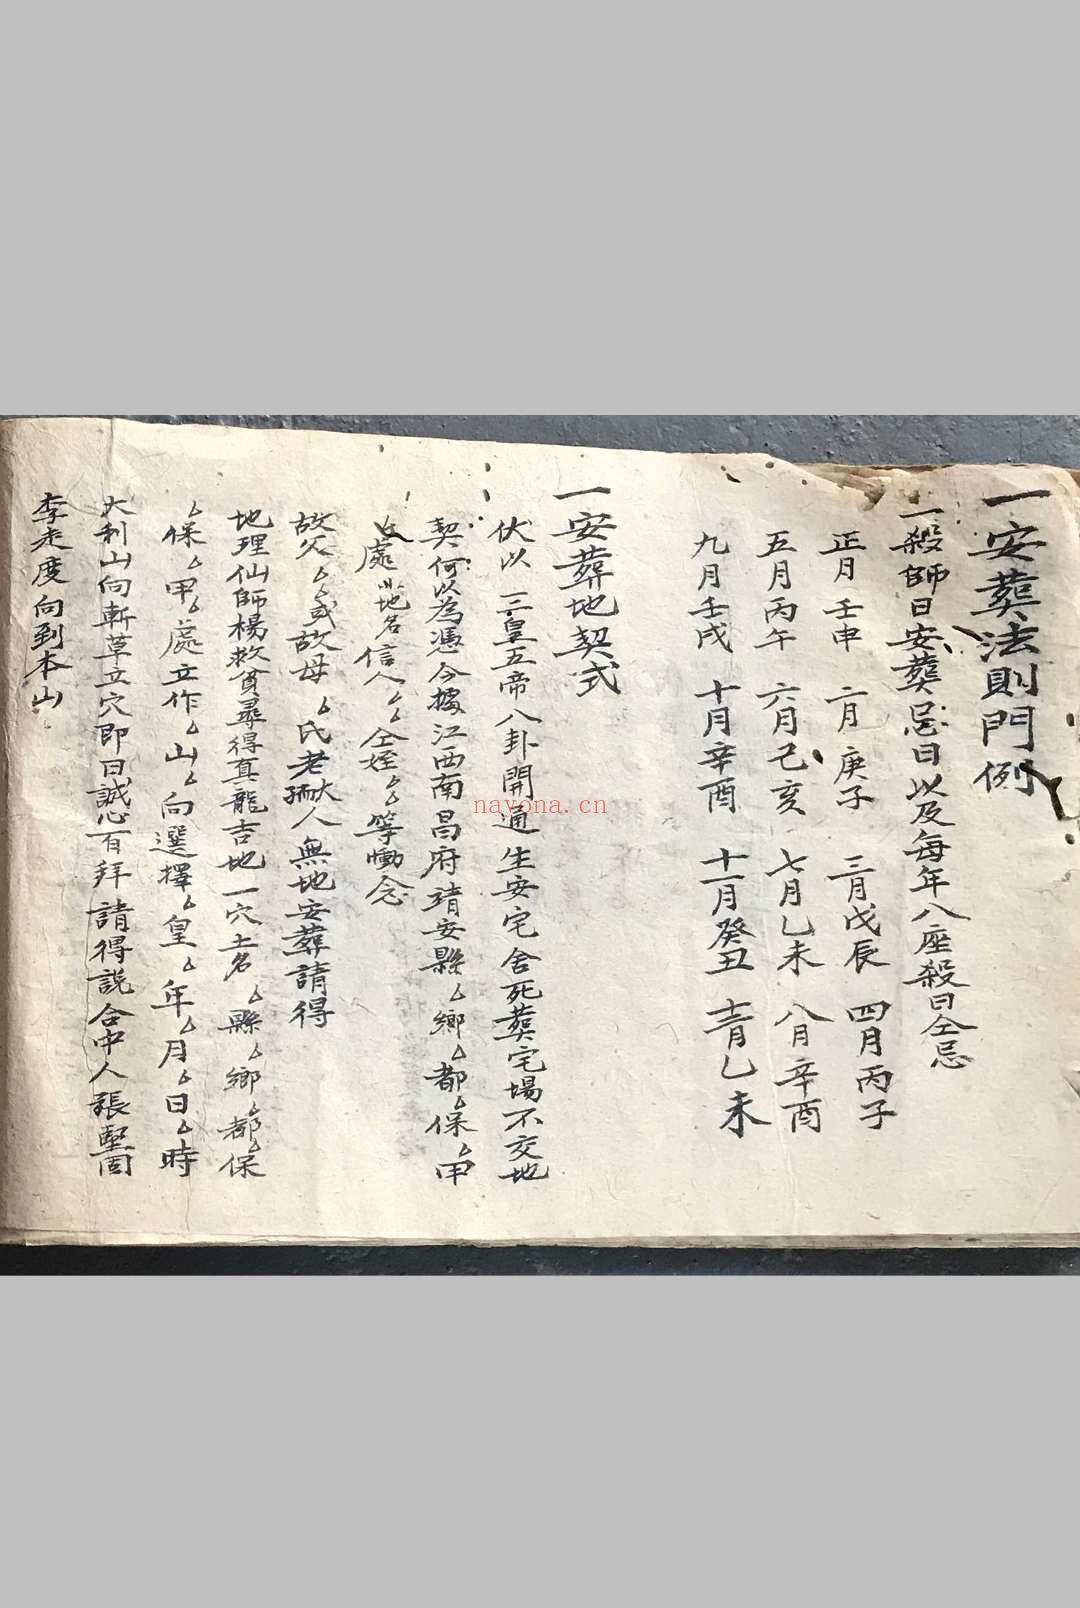 一安葬法則門例
一殺師日安葬忌日以及每年八座殺日仝忌
正月壬申 二月庚子 三月戊辰 四月丙子
五月丙午 六月己亥 七月乙未 八月辛酉
九月壬戌 十月辛酉 十一月癸丑 十二月乙未
一安葬地契式
伏以 三皇五帝八卦開通生安宅舍死葬宅場不交地
契何以為憑今據江西南昌府靖安縣、鄉、都、保、甲
處地名信人、、仝姪、、等慟念
故父、、或故母、氏老孺人無地安葬請得
地理仙師楊救貧尋得真龍吉地一穴土名、縣、鄉、都、保
、保、甲、處立作、山、向選擇、皇、年、月、日、時
大利山向斬草立穴即日誠心百拜請得說合中人張堅固
李定度向到本山
nayona.cn